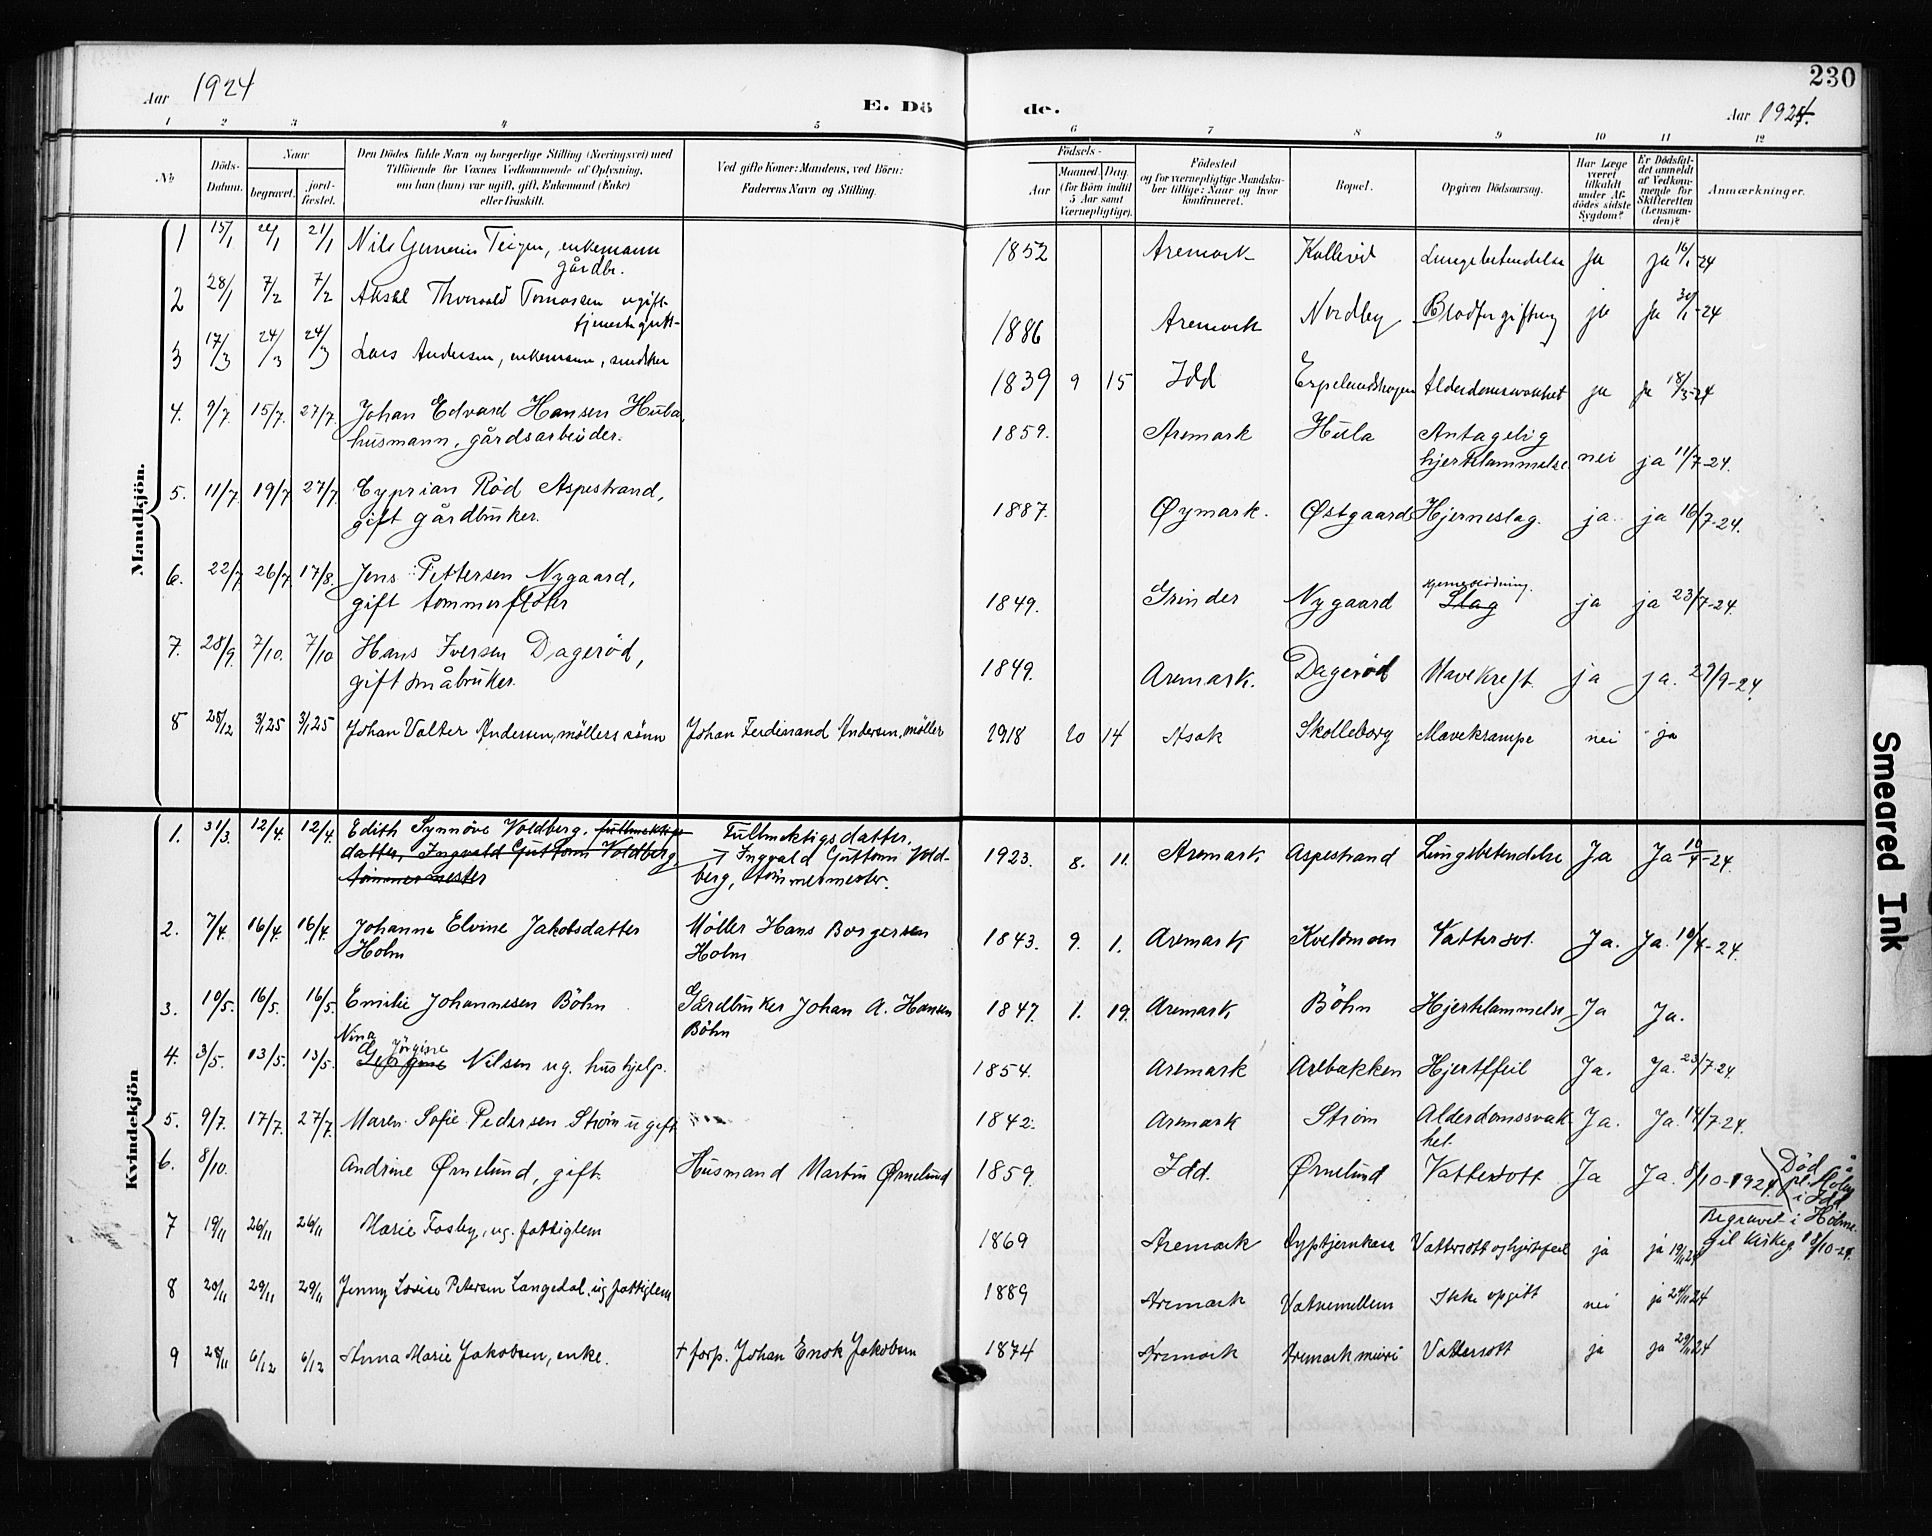 230
Aar 1924
E. Dö
de.
Aar 1924.
1 2 3 4 5 6 7 8 9 10 11 12
No
Döds-Datum.
Naar
begravet.
jord-fæstet.
Den Dödes fulde Navn og borgerlige Stilling (Næringsvei) med
Tilföiende for Voxnes Vedkommende af Oplysning,
om han (hun) var ugift, gift, Enkemand (Enke)
eller fraskilt.
Ved gifte Koner: Mandens, ved Börn:
Faderens Navn og Stilling.
Födsels-
Aar
Maaned. Dag.
(for Börn indtil
5 Aar samt
Værnepligtige).
Födested
og for værnepligtige Mandska-
ber tillige: Naar og hvor
konfirmeret.
Bopæl.
Opgiven Dödsaarsag.
Har Læge
været
tilkaldt
under Af-
dödes sidste
Sygdom?
Er Dödsfal-
det anmeldt
af Vedkom-
mende for
Skifteretten
(Lensman-
den)?
Anmærkninger.
Mandkjön.
1 15/1 21/1 Teigen, enkemann 1852 Aremark Lungebetendelse ja ja 16/1-24
gårdbr.
2 28/1 7/2 7/2 Aksel Thorvald Tomassen ugift 1886 Aremark Nordby Blodforgiftning ja ja 30/1-24
tjenestegutt
3 17/3 24/3 24/3 Lars Andersen, enkemann, snedker 1839 9 15 Idd ja ja 18/3-24
4. 9/7 15/7. 27/7. Johan Edvard Hansen Hula, 1859. Aremark Hula Antagelig
husmann, gårdsarbeider. hjerteklammelse nei ja 11/7-24.
5. 11/7 19/7 27/7 Cyprian Röd Aspestrand, 1887. Øymark. Østgaard Hjerneslag. ja. ja 16/7-24.
gift gårdbruker.
6. 22/7 26/7 17/8. Jens Pettersen Nygaard, 1849. Grinder Nygaard Slag ja ja 23/7-24.
gift tømmerfløter
7. 28/9. 7/10. 7/10 Hans Iversen Dageröd, 1849. Aremark. Dageröd Mavekreft. ja ja. 29/9-24.
gift småbruker.
8 28/12 3/1 25 3/1 25 Johan Valter Andersen, möllers sönn Johan Ferdinand Andersen, möller 1918 10 14 Asak Skolleborg Mavekrampe nei ja
Kvindekjön
1. 31/3 12/4. 12/4. Edith Synnöve Voldberg. fullmektigs Fullmektigsdatter. 1923. 8. 11. Aremark Aspestrand Lungebetendelse Ja Ja 10/4-24.
datter, Ingvald Guttorm Voldberg Ingvald Guttorm Vold-
tömmermester berg, tömmermester.
2. 7/4. 16/4. 16/4. Johanne Elvine Jakobsdatter Möller Hans Borgersen 1843. 9. 1. Aremark Kveldmoen Vattersot. Ja. Ja. 10/4-24.
Holm Holm
3. 10/5. 16/5. 16/5. Emilie Johannesen Böhn Gårdbruker Johan A. Hansen 1847. 1. 19. Aremark Böhn Hjerteklammelse Ja Ja.
Böhn
Nina
Jörgine
4. 3/5. 13/5. 13/5. Nilsen ug. hushjelp. 1854. Aremark Arebakken Hjertefeil Ja. Ja. 23/7-24.
5. 9/7. 17/7. 27/7. Maren Sofie Pedersen Strøm ugift 1842. Aremark Strøm Alderdomssvak- Ja. Ja. 14/7-24.
het.
6. 8/10. Andrine Ørnelund, gift. Husmand Martin Ørnelund 1859. Idd. Ørnelund Vattersott Ja Ja. 8/10-1924. Död på
Holm
i Idd.
Begravet i Holme-
gil kirkeg 18/10-24.
7 19/11 26/11 26/11 Marie Fosby, ug. fattiglem 1869 Aremark Vattersott og hjertefeil ja ja 19/11 24
8 20/11 29/11 29/11 Jenny Lovise Petersen Langedal, ug fattiglem 1889 Aremark Ikke opgitt nei ja 24/11 24
9 28/11 6/12 6/12 Anna Marie Jakobsen, enke. + forp. Johan Enok Jakobsen 1874 Aremark Vattersott ja ja 29/11 24
Smeared Ink